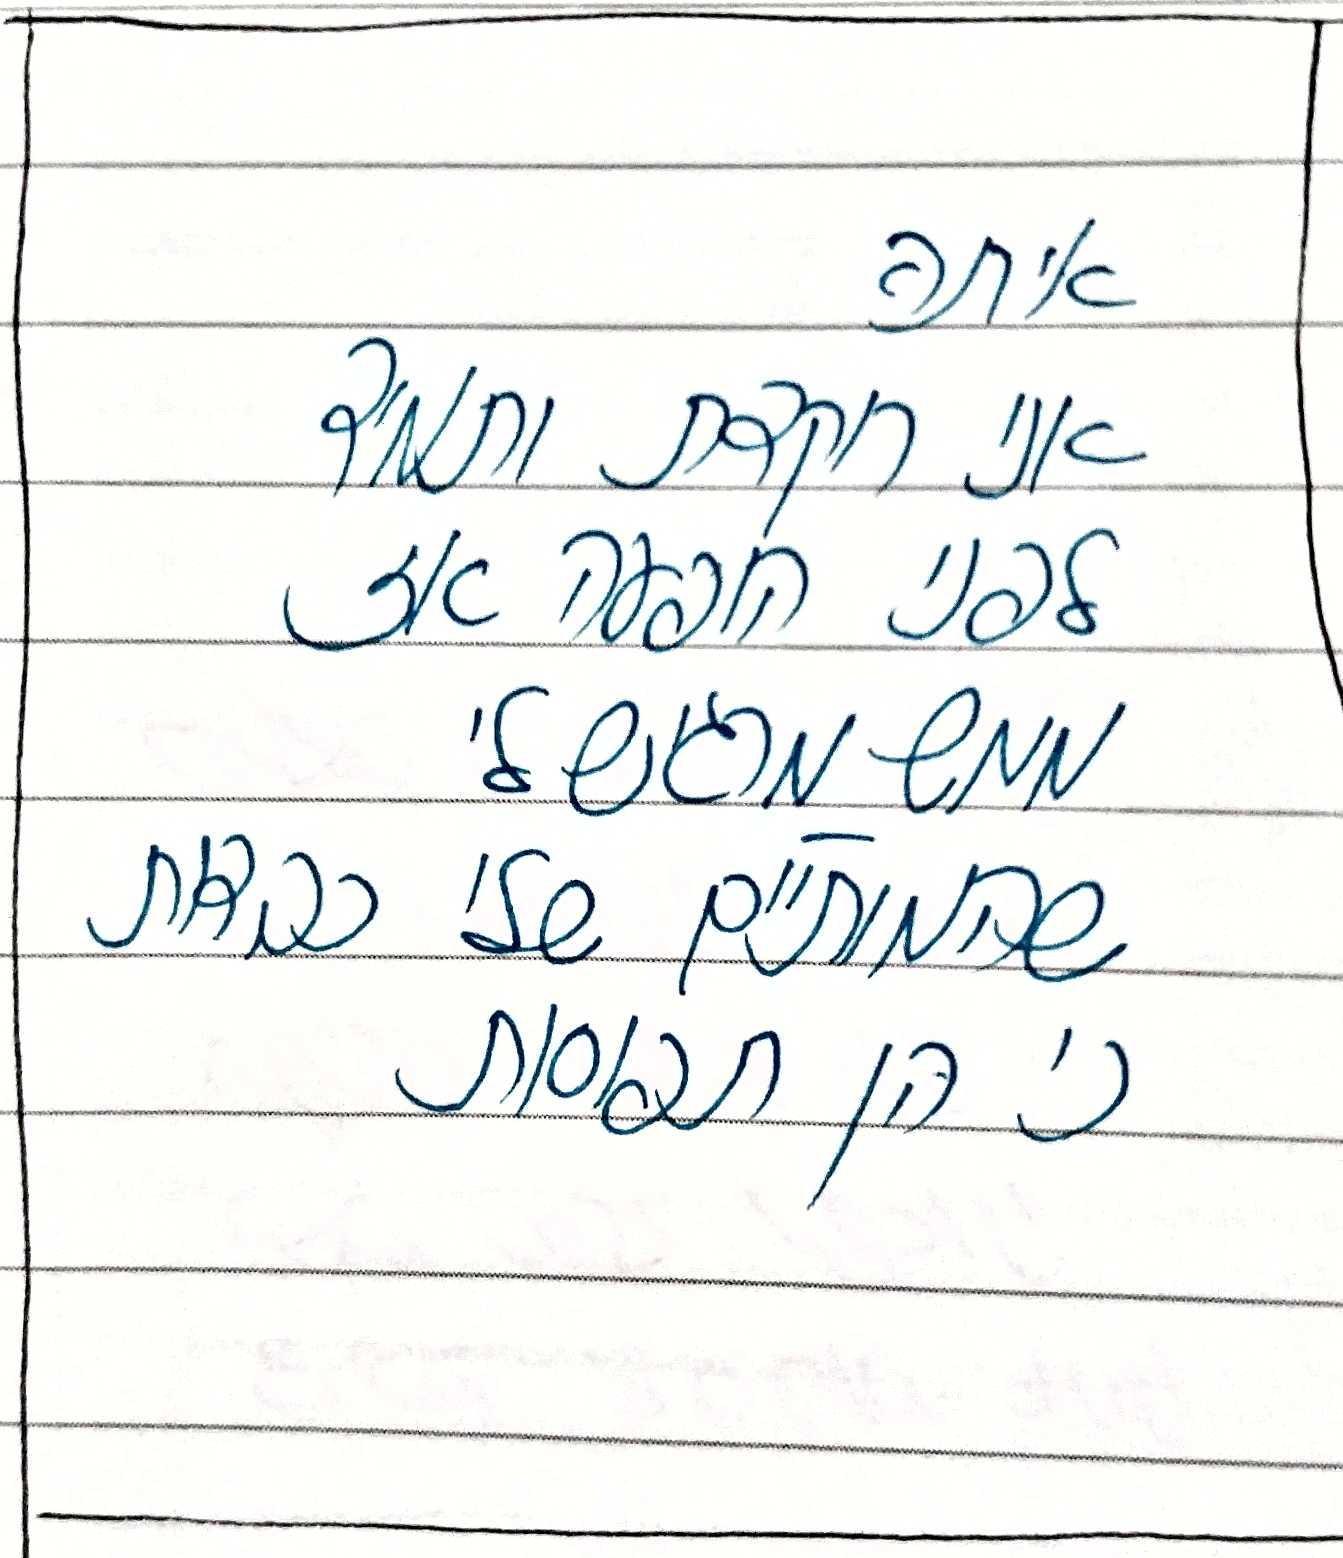 איתה
אני רוקדת ותמיד
לפני הופעה אז
ממש מרגיש לי
שהמותניים שלי כבדות
כי הן תפוסות